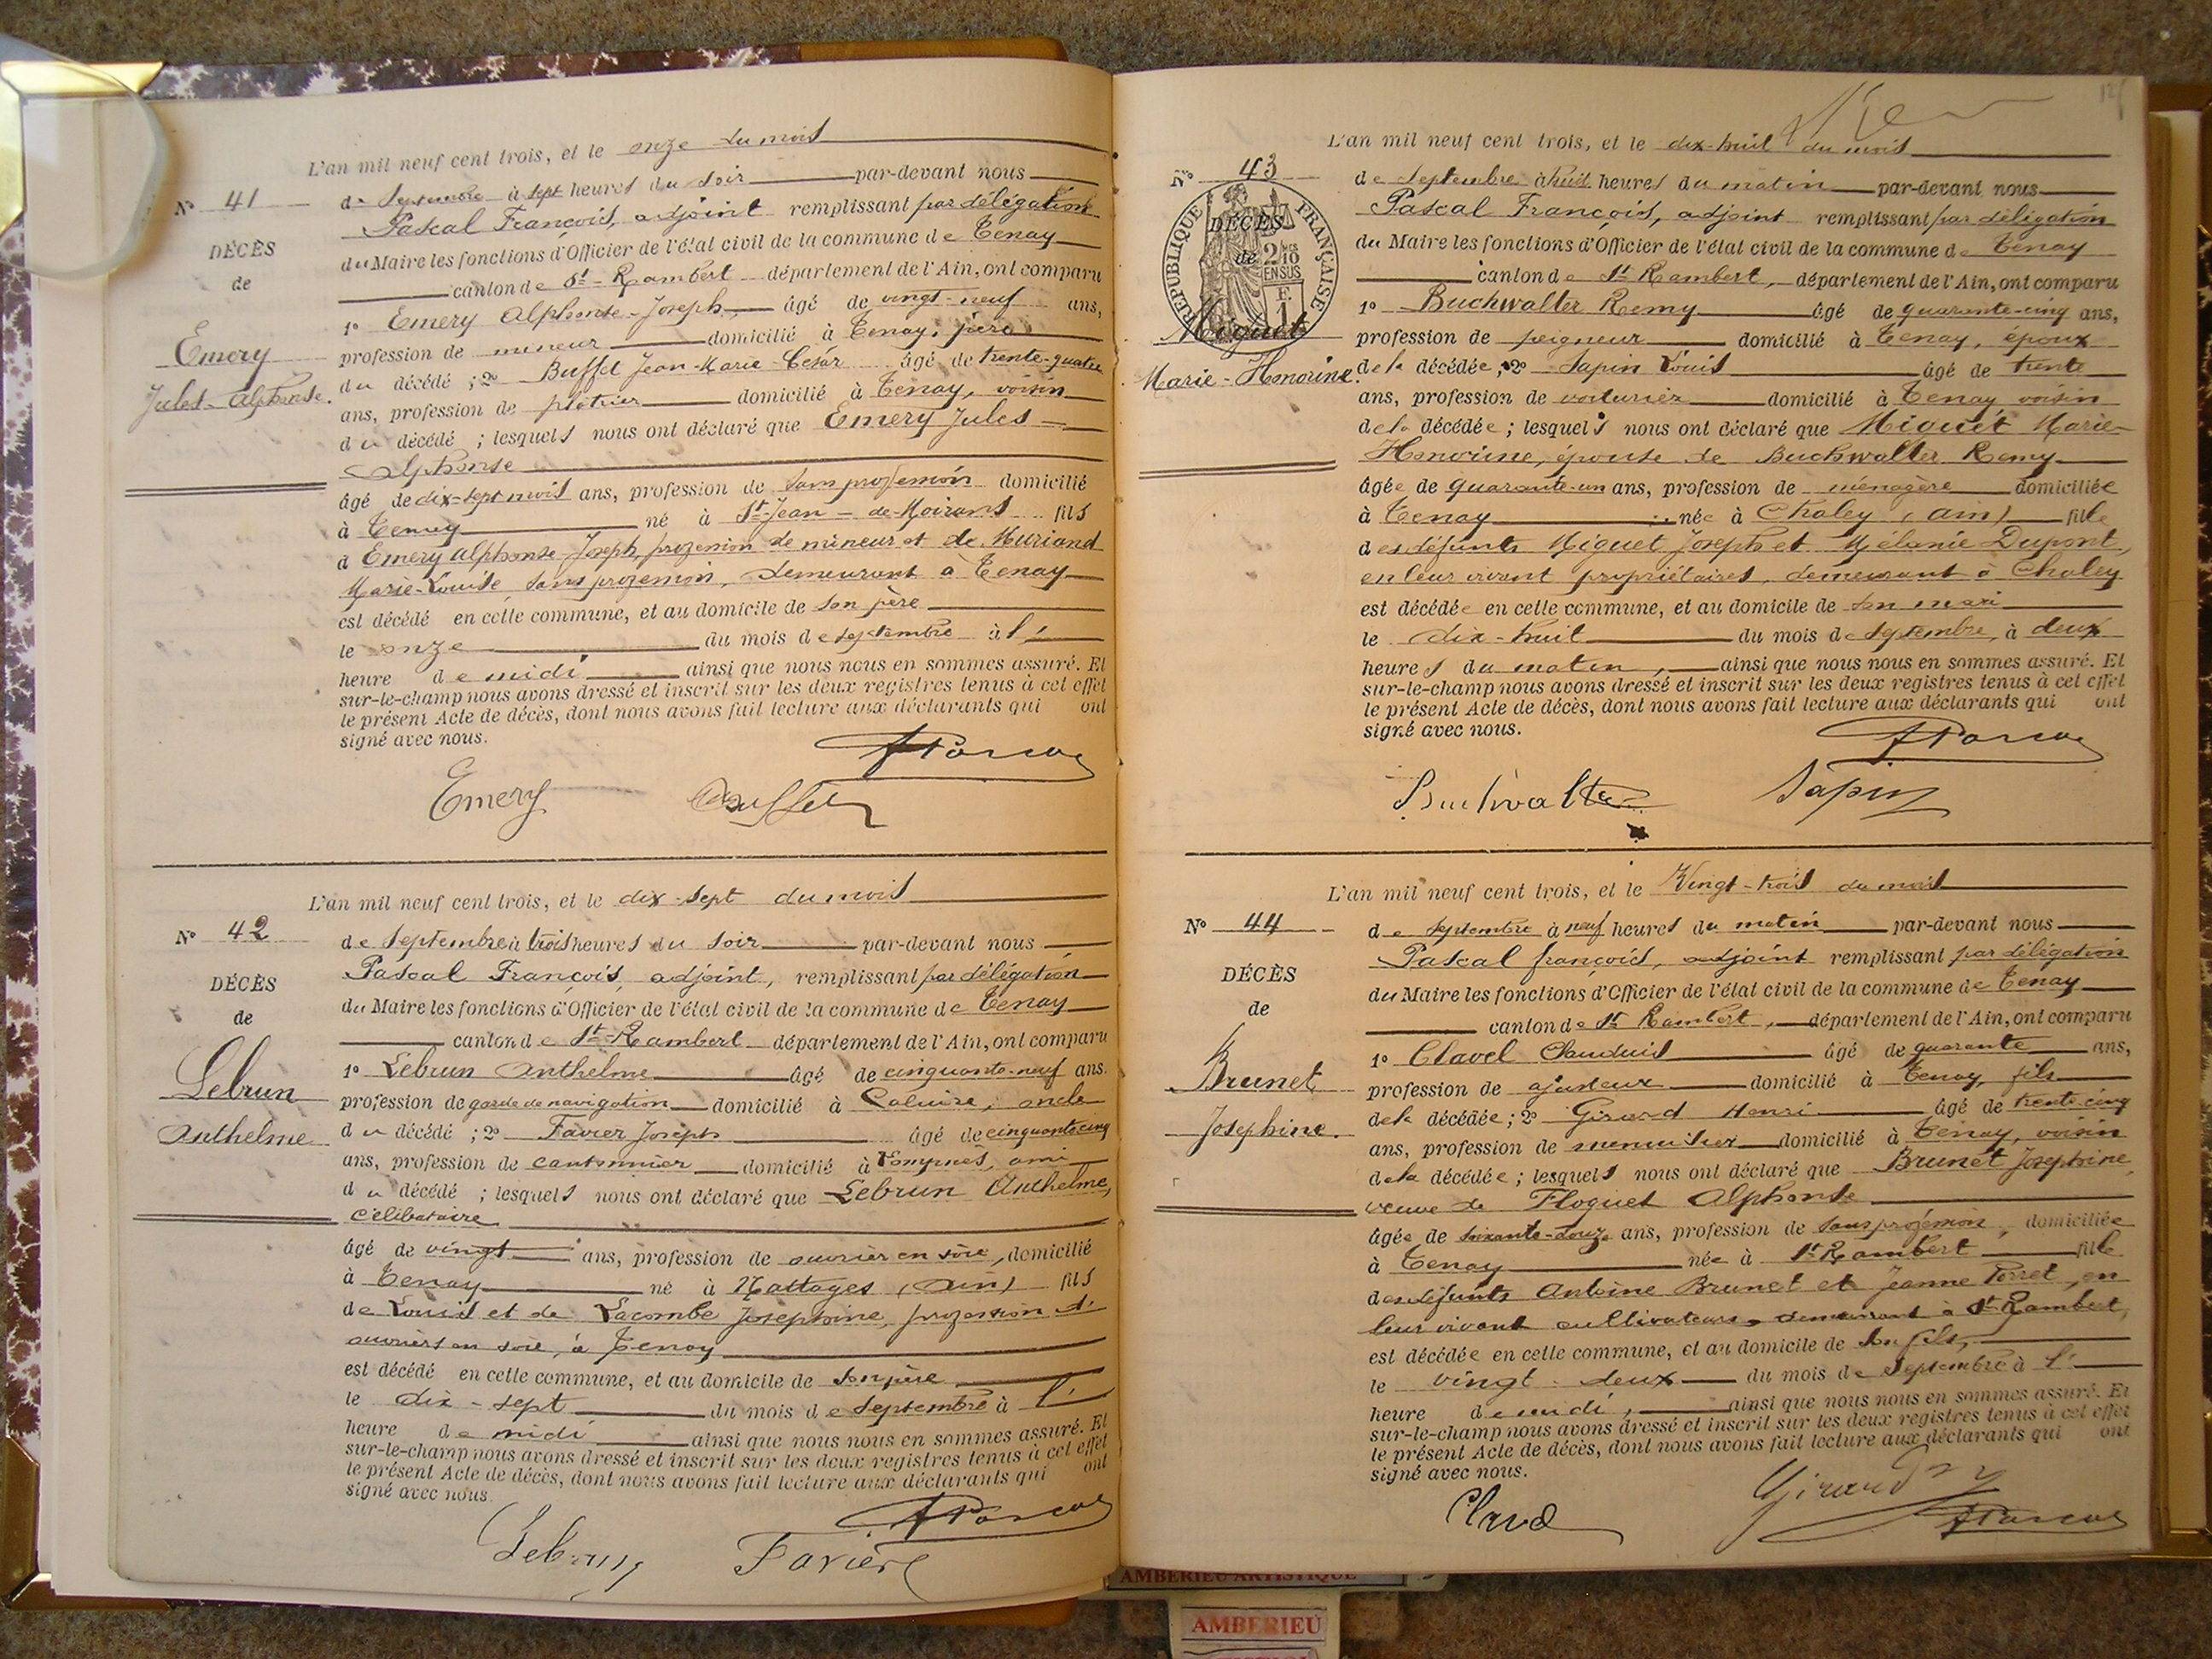 L'an mil neuf cent trois, et le onze du mois
N° 41
de Septembre à sept heures du soir par-devant nous
Pascal François, adjoint remplissant par délégation
DÉCÈS
du Maire les fonctions d'Officier de l'état civil de la commune de Tenay
de
canton de St-Rambert département de l'Ain, ont comparu
1° Emery Alphonse-Joseph, âgé de vingt-neuf ans,
Emery
profession de mineur domicilié à Tenay, père
Jules-Alphonse.
du décédé ; 2° Buffet Jean-Marie-César âgé de trente-quatre
ans, profession de plâtrier domicilié à Tenay, voisin
du décédé ; lesquels nous ont déclaré que Emery Jules-
Alphonse
âgé de dix-sept mois ans, profession de sans profession domicilié
à Tenay né à St-Jean-de-Moirans fils
d Emery Alphonse-Joseph, profession de mineur et de Muriand
Marie-Louise, sans profession, demeurant à Tenay
est décédé en cette commune, et au domicile de son père
le onze du mois de septembre à l'
heure de midi ainsi que nous nous en sommes assuré. Et
sur-le-champ nous avons dressé et inscrit sur les deux registres tenus à cet effet
le présent Acte de décès, dont nous avons fait lecture aux déclarants qui ont
signé avec nous.
Emery
L'an mil neuf cent trois, et le dix-sept du mois
N° 42
de Septembre à trois heures du soir par-devant nous
Pascal François, adjoint, remplissant par délégation
DÉCÈS
du Maire les fonctions d'Officier de l'état civil de la commune de Tenay
de
canton de St-Rambert département de l'Ain, ont comparu
1° Lebrun Anthelme âgé de cinquante-neuf ans.
Lebrun
profession de garde de navigation domicilié à Caluire, oncle
Anthelme
du décédé ; 2° Favier Joseph âgé de cinquante cinq
ans, profession de cantonnier domicilié à ami
du décédé ; lesquels nous ont déclaré que Lebrun Anthelme,
célibataire
âgé de vingt ans, profession de ouvrier en soie, domicilié
à Tenay né à Nattages (Ain) fils
de Louis et de Lacombe Josephine, profession d'
ouvriers en soie, à Tenay
est décédé en cette commune, et au domicile de son père
le dix-sept du mois de Septembre à l'
heure de midi ainsi que nous nous en sommes assuré. Et
sur-le-champ nous avons dressé et inscrit sur les deux registres tenus à cet effet
le présent Acte de décès, dont nous avons fait lecture aux déclarants qui ont
signé avec nous.
Lebrun Favier
L'an mil neuf cent trois, et le dix-huit du mois
N° 43
de Septembre à huit heures du matin par-devant nous
Pascal François, adjoint remplissant par délégation
DÉCÈS
RÉPUBLIQUE FRANÇAISE
du Maire les fonctions d'Officier de l'état civil de la commune de Tenay
de
canton de St Rambert, département de l'Ain, ont comparu
1° Buchwalter Remy âgé de quarante-cinq ans,
Miguet
profession de peigneur domicilié à Tenay, époux
Marie-Honorine.
de la décédée ; 2° Sapin Louis âgé de trente
ans, profession de voiturier domicilié à Tenay voisin
de la décédée ; lesquels nous ont déclaré que Miguet Marie-
Honorine, épouse de Buchwalter Remy
âgée de quarante-un ans, profession de ménagère domiciliée
à Tenay née à Chaley (Ain) fille
des défunts Miguet Joseph et Mélanie Dupont,
en leur vivant propriétaires, demeurant à Chaley
est décédée en cette commune, et au domicile de son mari
le dix-huit du mois de Septembre, à deux
heures du matin, ainsi que nous nous en sommes assuré. Et
sur-le-champ nous avons dressé et inscrit sur les deux registres tenus à cet effet
le présent Acte de décès, dont nous avons fait lecture aux déclarants qui ont
signé avec nous.
Buchwalter Sapin
L'an mil neuf cent trois, et le Vingt-trois du mois
N° 44
de Septembre à neuf heures du matin par-devant nous
Pascal françois, adjoint remplissant par délégation
DÉCÈS
du Maire les fonctions d'Officier de l'état civil de la commune de Tenay
de
canton de St Rambert, département de l'Ain, ont comparu
1° Clavel Claudius âgé de quarante ans,
Brunet
profession de ajusteur domicilié à Tenay, fils
Josephine.
de la décédée ; 2° Girard Henri âgé de trente cinq
ans, profession de menuisier domicilié à Tenay, voisin
de la décédée ; lesquels nous ont déclaré que Brunet Josephine,
veuve de Floquet Alphonse
âgée de soixante-douze ans, profession de sans profession, domiciliée
à Tenay née à St Rambert fille
des défunts Antoine Brunet et Jeanne Perret, en
leur vivant cultivateurs demeurant à St Rambert,
est décédée en cette commune, et au domicile de son fils,
le vingt-deux du mois de Septembre à l'
heure de midi, ainsi que nous nous en sommes assuré. Et
sur-le-champ nous avons dressé et inscrit sur les deux registres tenus à cet effet
le présent Acte de décès, dont nous avons fait lecture aux déclarants qui ont
signé avec nous.
Clavel
AMBERIEU ARTISTIQUE
AMBERIEU